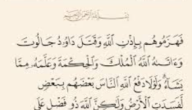 فَهَزَمُوهُم بِإِذْنِ ٱللَّهِ وَقَتَلَ دَاوُۥدُ جَالُوتَ
وَءَاتَىٰهُ ٱللَّهُ ٱلْمُلْكَ وَٱلْحِكْمَةَ وَعَلَّمَهُۥ مِمَّا
يَشَآءُ وَلَوْلَا دَفْعُ ٱللَّهِ ٱلنَّاسَ بَعْضَهُم بِبَعْضٍ
لَّفَسَدَتِ ٱلْأَرْضُ وَلَٰكِنَّ ٱللَّهَ ذُو فَضْلٍ عَلَى